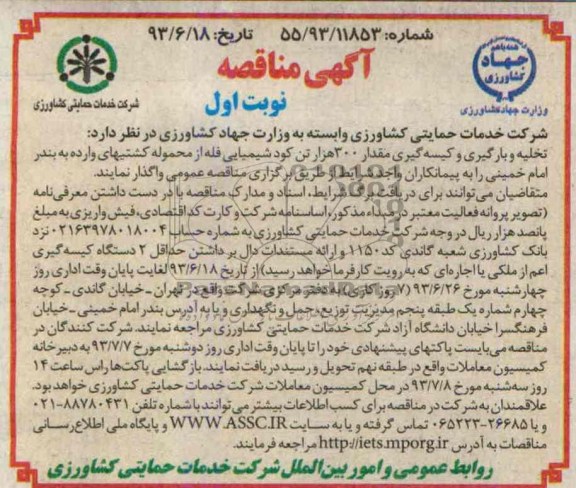 شماره: ۵۵/۹۳/۱۱۸۵۳ تاریخ: ۹۳/۶/۱۸
همه با هم
جهاد
کشاورزی
وزارت جهاد کشاورزی
آگهی مناقصه
نوبت اول
شرکت خدمات حمایتی کشاورزی
شرکت خدمات حمایتی کشاورزی وابسته به وزارت جهاد کشاورزی در نظر دارد:
تخلیه و بارگیری و کیسه گیری مقدار ۳۰۰هزار تن کود شیمیایی فله از محموله کشتیهای وارده به بندر
امام خمینی را به پیمانکاران واجد شرایط از طریق برگزاری مناقصه عمومی واگذار نمایند.
متقاضیان می‌توانند برای دریافت فرم شرایط، اسناد و مدارک مناقصه با در دست داشتن معرفی‌نامه
(تصویر پروانه فعالیت معتبر در مبداء مذکور، اساسنامه شرکت و کارت کد اقتصادی، فیش واریزی به مبلغ
پانصد هزار ریال در وجه شرکت خدمات حمایتی کشاورزی به شماره حساب ۰۲۱۶۳۹۷۸۰۱۸۰۰۴ نزد
بانک کشاورزی شعبه گاندی کد ۱۱۵۰ و ارائه مستندات دال بر داشتن حداقل ۲ دستگاه کیسه گیری
اعم از ملکی یا اجاره‌ای که به رویت کارفرما خواهد رسید) از تاریخ ۹۳/۶/۱۸ لغایت پایان وقت اداری روز
چهارشنبه مورخ ۹۳/۶/۲۶ (۷ روز کاری) به دفتر مرکزی شرکت واقع در تهران ـ خیابان گاندی ـ کوچه
چهارم شماره یک طبقه پنجم مدیریت توزیع، حمل و نگهداری و یا به آدرس بندر امام خمینی ـ خیابان
فرهنگسرا خیابان دانشگاه آزاد شرکت خدمات حمایتی کشاورزی مراجعه نمایند. شرکت کنندگان در
مناقصه می‌بایست پاکتهای پیشنهادی خود را تا پایان وقت اداری روز دوشنبه مورخ ۹۳/۷/۷ به دبیرخانه
کمیسیون معاملات واقع در طبقه نهم تحویل و رسید دریافت نمایند. بازگشایی پاکت‌ها راس ساعت ۱۴
روز سه‌شنبه مورخ ۹۳/۷/۸ در محل کمیسیون معاملات شرکت خدمات حمایتی کشاورزی خواهد بود.
علاقمندان به شرکت در مناقصه برای کسب اطلاعات بیشتر می‌توانند با شماره تلفن ۸۸۷۸۰۴۳۱-۰۲۱
و یا ۲۶۶۸۵-۰۶۵۲۲۳ تماس گرفته و یا به سایت WWW.ASSC.IR و پایگاه ملی اطلاع رسانی
مناقصات به آدرس http://iets.mporg.ir مراجعه فرمایند.
روابط عمومی و امور بین‌الملل شرکت خدمات حمایتی کشاورزی